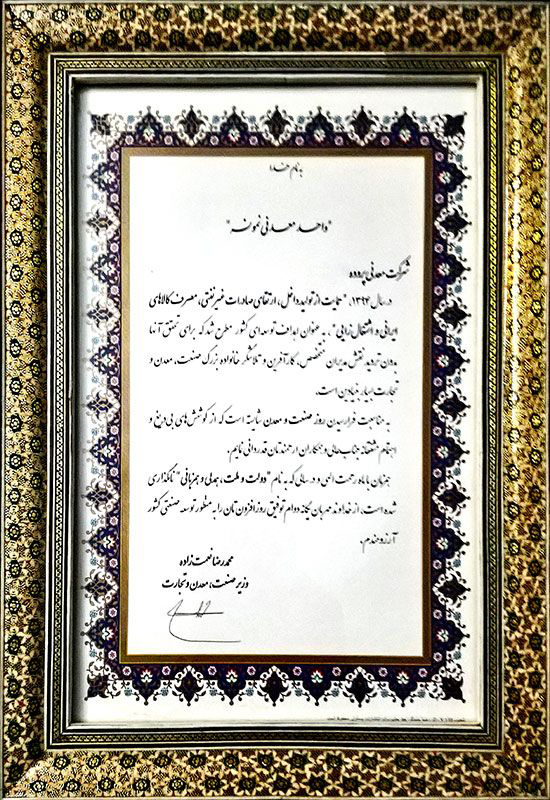 به نام خدا
"واحد معدنی نمونه"
شرکت معدنی پروده
در سال ۱۳۹۳، "حمایت از تولید داخل، ارتقای صادرات غیرنفتی، مصرف کالاهای
ایرانی و اشتغال زایی"، به عنوان اهداف توسعه‌ای کشور مطرح شد که برای تحقق آنها
بدون تردید نقش مدیران متخصص، کارآفرین و تلاشگر خانواده بزرگ صنعت، معدن و
تجارت بسیار بنیادین است.
به مناسبت فرارسیدن روز صنعت و معدن شایسته است که از کوشش‌های بی‌دریغ و
اهتمام مشتاقانه جنابعالی و همکاران ارجمندتان قدردانی نمایم.
همزمان با ماه رحمت الهی و در سالی که به نام "دولت و ملت، همدلی و همزبانی" نامگذاری
شده است، از خداوند مهربان یگانه دوام توفیق روزافزون‌تان را به منظور توسعه صنعتی کشور
آرزومندم.
محمدرضا نعمت‌زاده
وزیر صنعت، معدن و تجارت